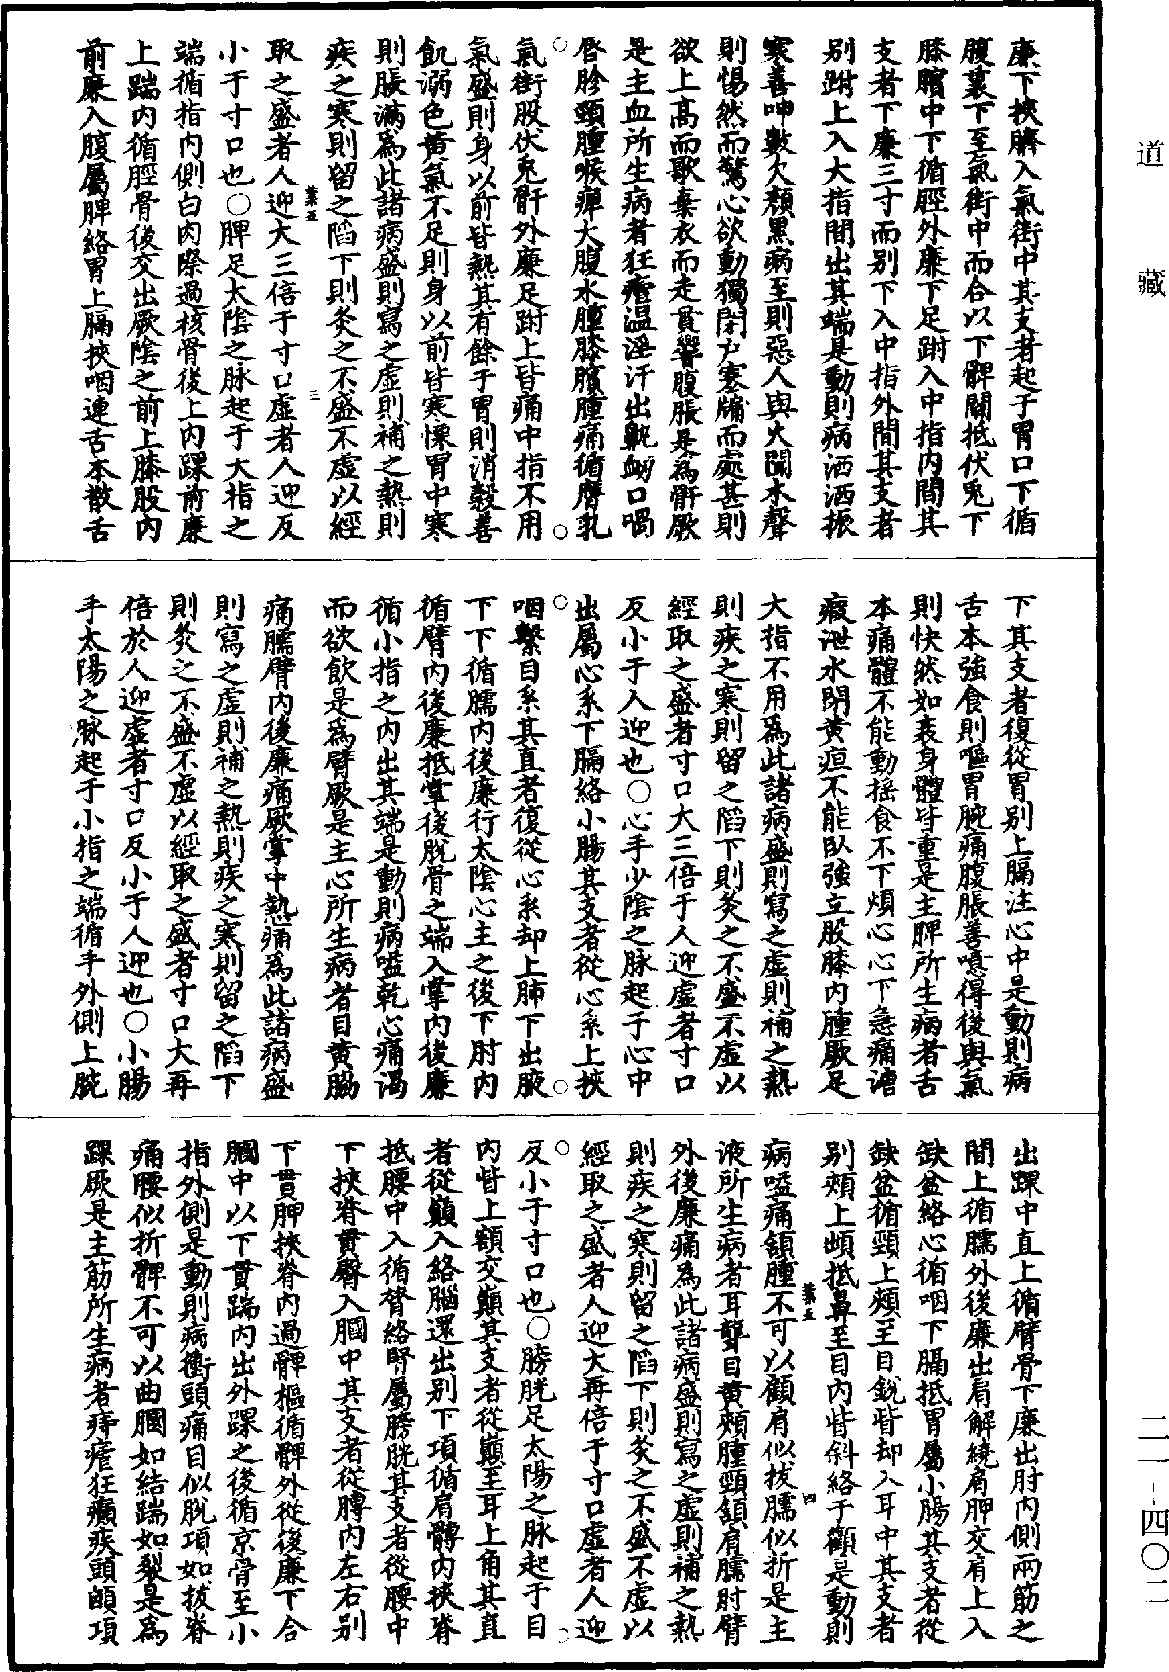 道藏
廉下挾臍入氣街中其支者起于胃口下循
腹裏下至氣街中而合以下髀關抵伏兔下
膝臏中下循脛外廉下足跗入中指內間其
支者下廉三寸而別下入中指外間其支者
別跗上入大指間出其端是動則病洒洒振
寒善呻數欠顏黑病至則惡人與火聞木聲
則惕然而驚心欲動獨閉戶塞牖而處甚則
欲上高而歌棄衣而走賁響腹脹是為骭厥
是主血所生病者狂瘧溫淫汗出鼽衄口喎
唇胗頸腫喉痺大腹水腫膝臏腫痛循膺乳
氣街股伏兔骭外廉足跗上皆痛中指不用
氣盛則身以前皆熱其有餘于胃則消穀善
飢溺色黃氣不足則身以前皆寒慄胃中寒
則脹滿為此諸病盛則寫之虛則補之熱則
疾之寒則留之陷下則灸之不盛不虛以經
葉五
三
取之盛者人迎大三倍于寸口虛者人迎反
小于寸口也○脾足太陰之脉起于大指之
端循指內側白肉際過核骨後上內踝前廉
上踹內循脛骨後交出厥陰之前上膝股內
前廉入腹屬脾絡胃上膈挾咽連舌本散舌
下其支者復從胃別上膈注心中是動則病
舌本強食則嘔胃脘痛腹脹善噫得後與氣
則快然如衰身體皆重是主脾所生病者舌
本痛體不能動搖食不下煩心心下急痛溏
瘕泄水閉黃疸不能臥強立股膝內腫厥足
大指不用為此諸病盛則寫之虛則補之熱
則疾之寒則留之陷下則灸之不盛不虛以
經取之盛者寸口大三倍于人迎虛者寸口
反小于人迎也○心手少陰之脉起于心中
出屬心系下膈絡小腸其支者從心系上挾
咽繫目系其直者復從心系却上肺下出腋
下下循臑內後廉行太陰心主之後下肘內
循臂內後廉抵掌後脫骨之端入掌內後廉
循小指之內出其端是動則病嗌乾心痛渴
而欲飲是為臂厥是主心所生病者目黃脇
痛臑臂內後廉痛厥掌中熱痛為此諸病盛
則寫之虛則補之熱則疾之寒則留之陷下
則灸之不盛不虛以經取之盛者寸口大再
倍於人迎虛者寸口反小于人迎也○小腸
手太陽之脉起于小指之端循手外側上腕
出踝中直上循臂骨下廉出肘內側兩筋之
間上循臑外後廉出肩解繞肩胛交肩上入
缺盆絡心循咽下膈抵胃屬小腸其支者從
缺盆循頸上頰至目銳眥却入耳中其支者
別頰上䪼抵鼻至目內眥斜絡于顴是動則
葉五
四
病嗌痛頷腫不可以顧肩似拔臑似折是主
液所生病者耳聾目黃頰腫頸頷肩臑肘臂
外後廉痛為此諸病盛則寫之虛則補之熱
則疾之寒則留之陷下則灸之不盛不虛以
經取之盛者人迎大再倍于寸口虛者人迎
反小于寸口也○膀胱足太陽之脉起于目
內眥上額交巔其支者從巔至耳上角其直
者從巔入絡腦還出別下項循肩髆內挾脊
抵腰中入循膂絡腎屬膀胱其支者從腰中
下挾脊貫臀入膕中其支者從髆內左右別
下貫胛挾脊內過髀樞循髀外從後廉下合
膕中以下貫踹內出外踝之後循京骨至小
指外側是動則病衝頭痛目似脫項如拔脊
痛腰似折髀不可以曲膕如結踹如裂是為
踝厥是主筋所生病者痔瘧狂癲疾頭䪿項
二一-四〇二